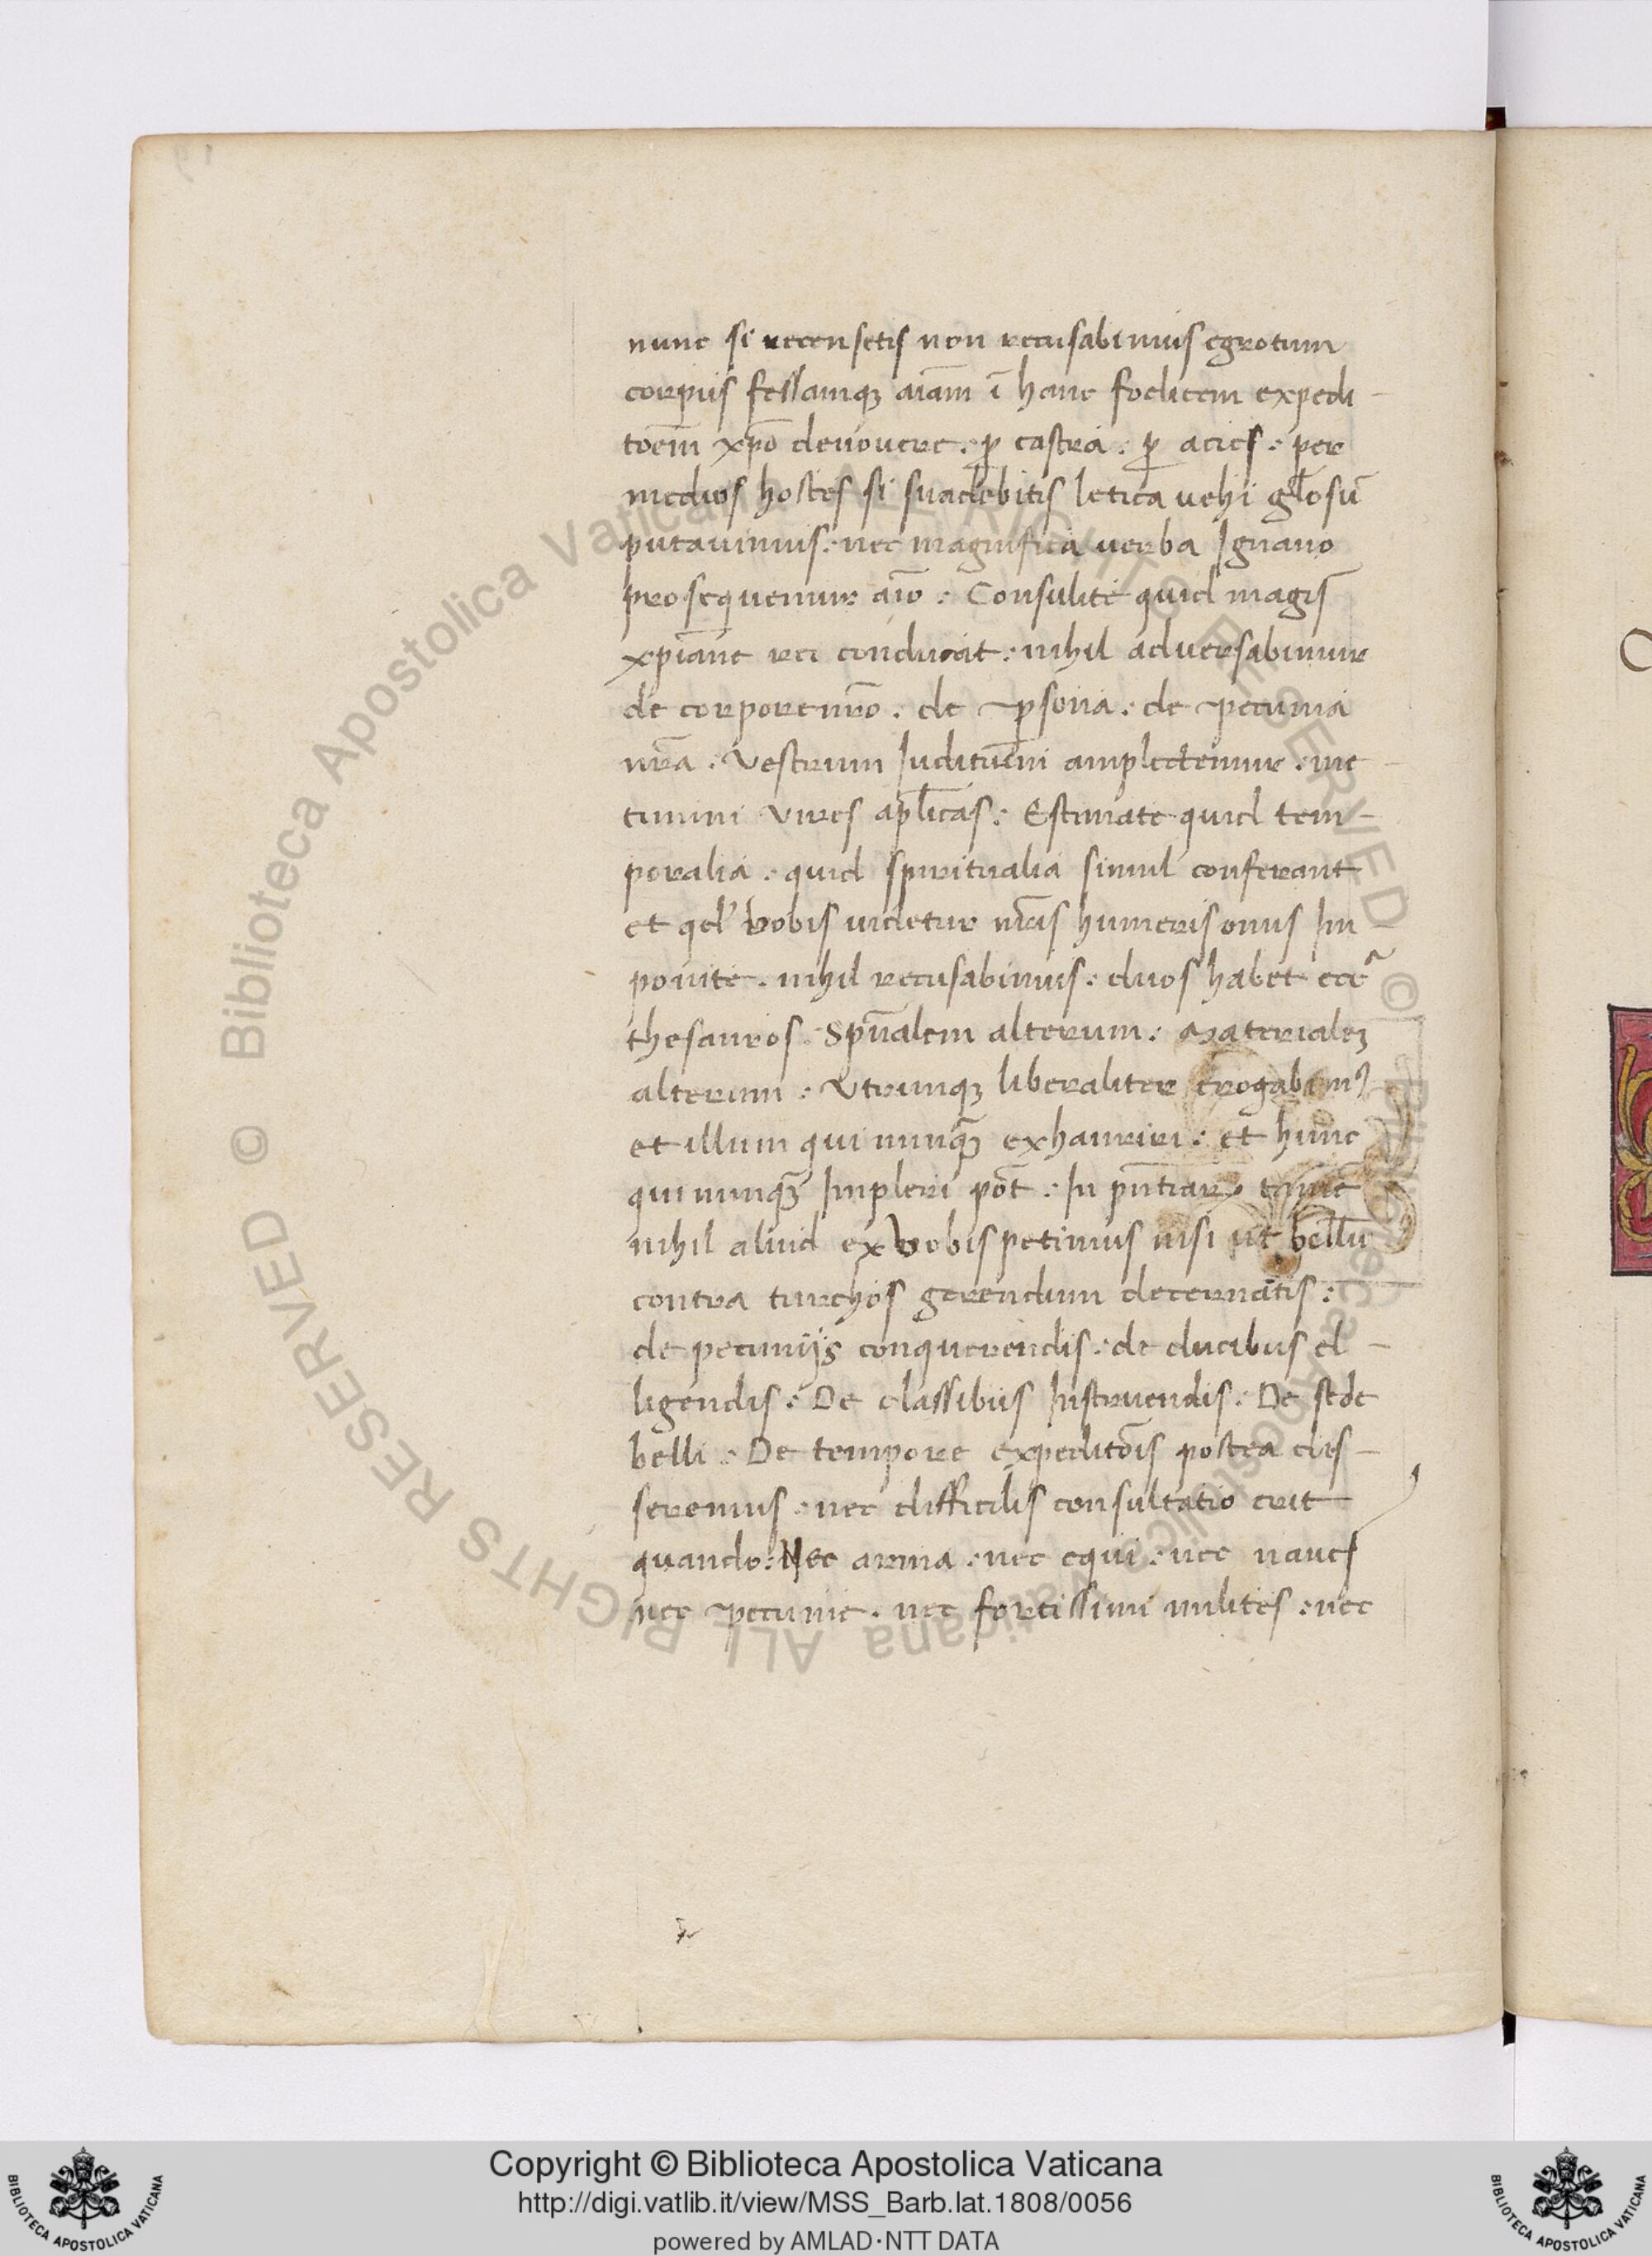 nunc si recensetis non recusabimus egrotum
corpus fessamqȝ aīam ī hanc foelicem expedi-
toēm xp̄o deuouere. ꝑ castra. ꝑ acies. per
medios hostes si suadebitis letica uehi gl̄osū
putauimus. nec magnifica uerba Ignauo
prosequemur aīo. Consulite quid magis
xp̄iane rei conducat. nihil aduersabimur
de corpore nr̄o. de ꝑsona. de pecunia
nr̄a. Vestrum amplectemur. me-
timini Vires ap̄licas. Estimate quid tem-
poralia. quid spiritualia simul conferant
et qd' vobis uidetur nr̄is humeris onus Im
ponite. nihil recusabimus. duos habet
thesauros. Spūalem alterum. Materialeȝ
alterum. Vtrumqȝ liberaliter erogabimꝰ
et illum qui nunqꝫ exhauriri. et hunc
qui nunqꝫ Impleri pōt. In tamē
nihil aliud ex vobis petimus nisi ut bellū
contra turchos gerendum decernatis.
de pecunijs conquerendis. de ducibus el-
ligendis. De classibus Instruendis. De sede
belli. De tempore expeditōis postea dis-
seremus. nec difficilis consultatio erit
quando. Nec arma. nec equi. nec naues
nec pecunie. nec fortissimi milites. nec
Copyright © Biblioteca Apostolica Vaticana
http://digi.vatlib.it/view/MSS_Barb.lat.1808/0056
powered by AMLAD·NTT DATA
BIBLIOTECA APOSTOLICA VATICANA
BIBLIOTECA APOSTOLICA VATICANA
© Biblioteca Apostolica Vaticana ALL RIGHTS RESERVED
© Biblioteca Apostolica Vaticana ALL RIGHTS RESERVED